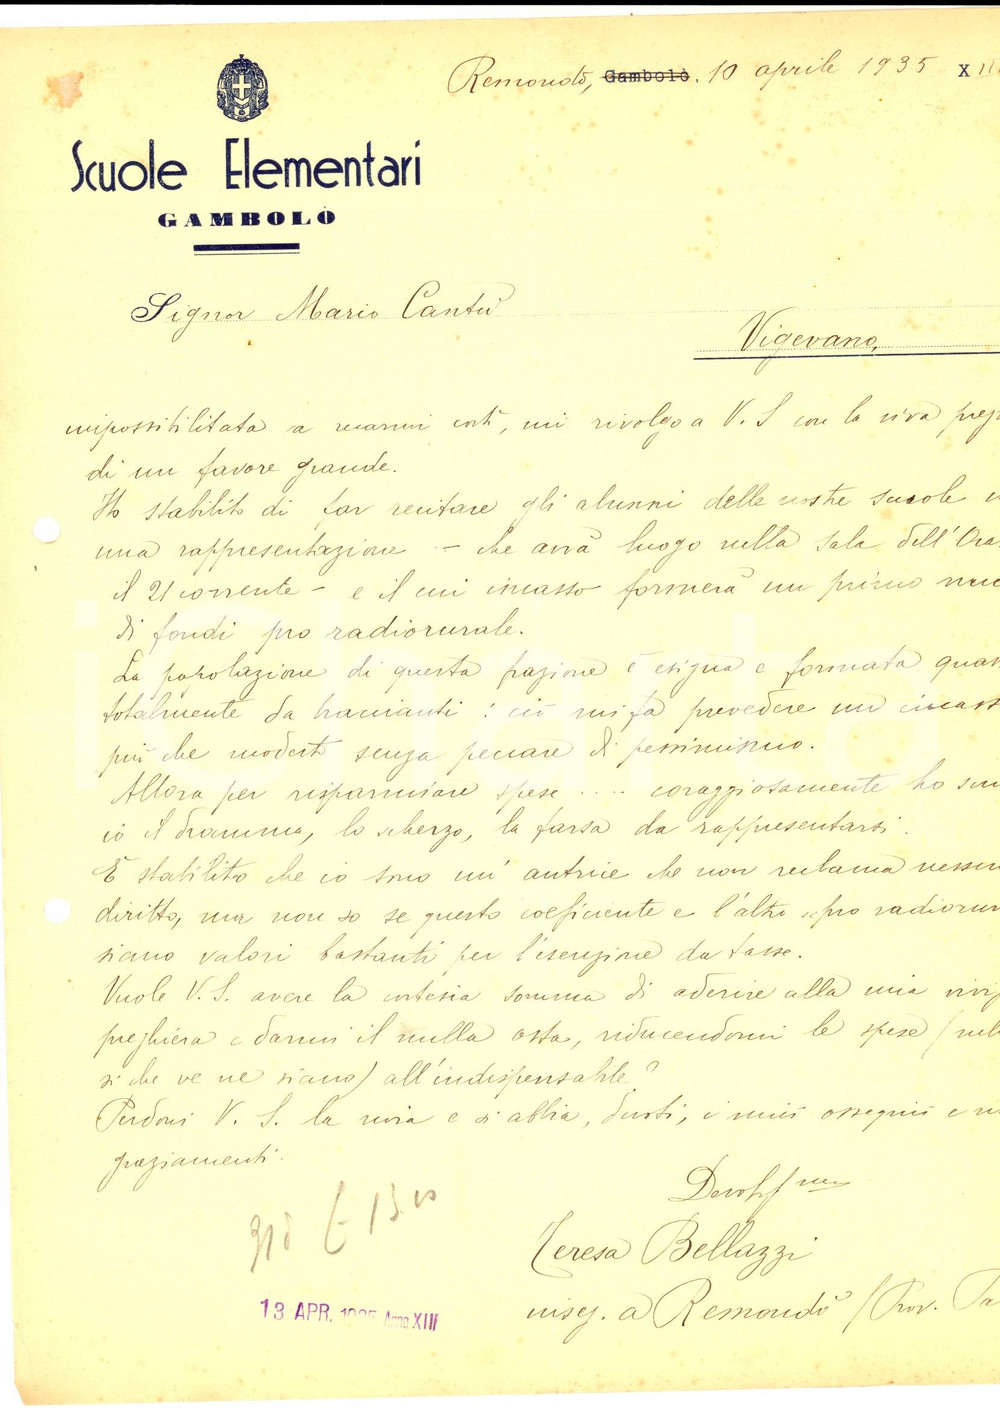 Remondò, Gambolò. 10 aprile 1935 XIII
Scuole Elementari
GAMBOLÒ
Signor Mario Cantù
Vigevano,
impossibilitata a recarmi costì, mi rivolgo a V. S con la viva
di un favore grande.
Ho stabilito di far recitare gli alunni delle nostre scuole
una rappresentazione - che avrà luogo nella sala dell'
il 21 corrente - e il cui incasso formerà un primo
di fondi pro radiorurale.
La popolazione di questa frazione è esigua e formata
totalmente da braccianti: ciò mi fa prevedere un
più che modesto senza peccare di pessimismo.
Allora per risparmiare spese .... coraggiosamente ho
io il dramma, lo scherzo, la farsa da rappresentarsi.
È stabilito che io sono un'autrice che non reclama
diritto, ma non so se questo coeficiente e l'altro "pro
siano valori bastanti per l'esenzione da tasse.
Vuole V. S. avere la cortesia somma di aderire alla mia
preghiera e darmi il nulla osta, riducendomi le spese
si che ve ne siano) all'indispensabile?
Perdoni V. S. la noia e si abbia, questi, i miei ossequii e
graziamenti.
Devotissma
Teresa Bellazzi
inseg. a Remondò (Prov.
£ 13
13 APR. 1935 Anno XIII